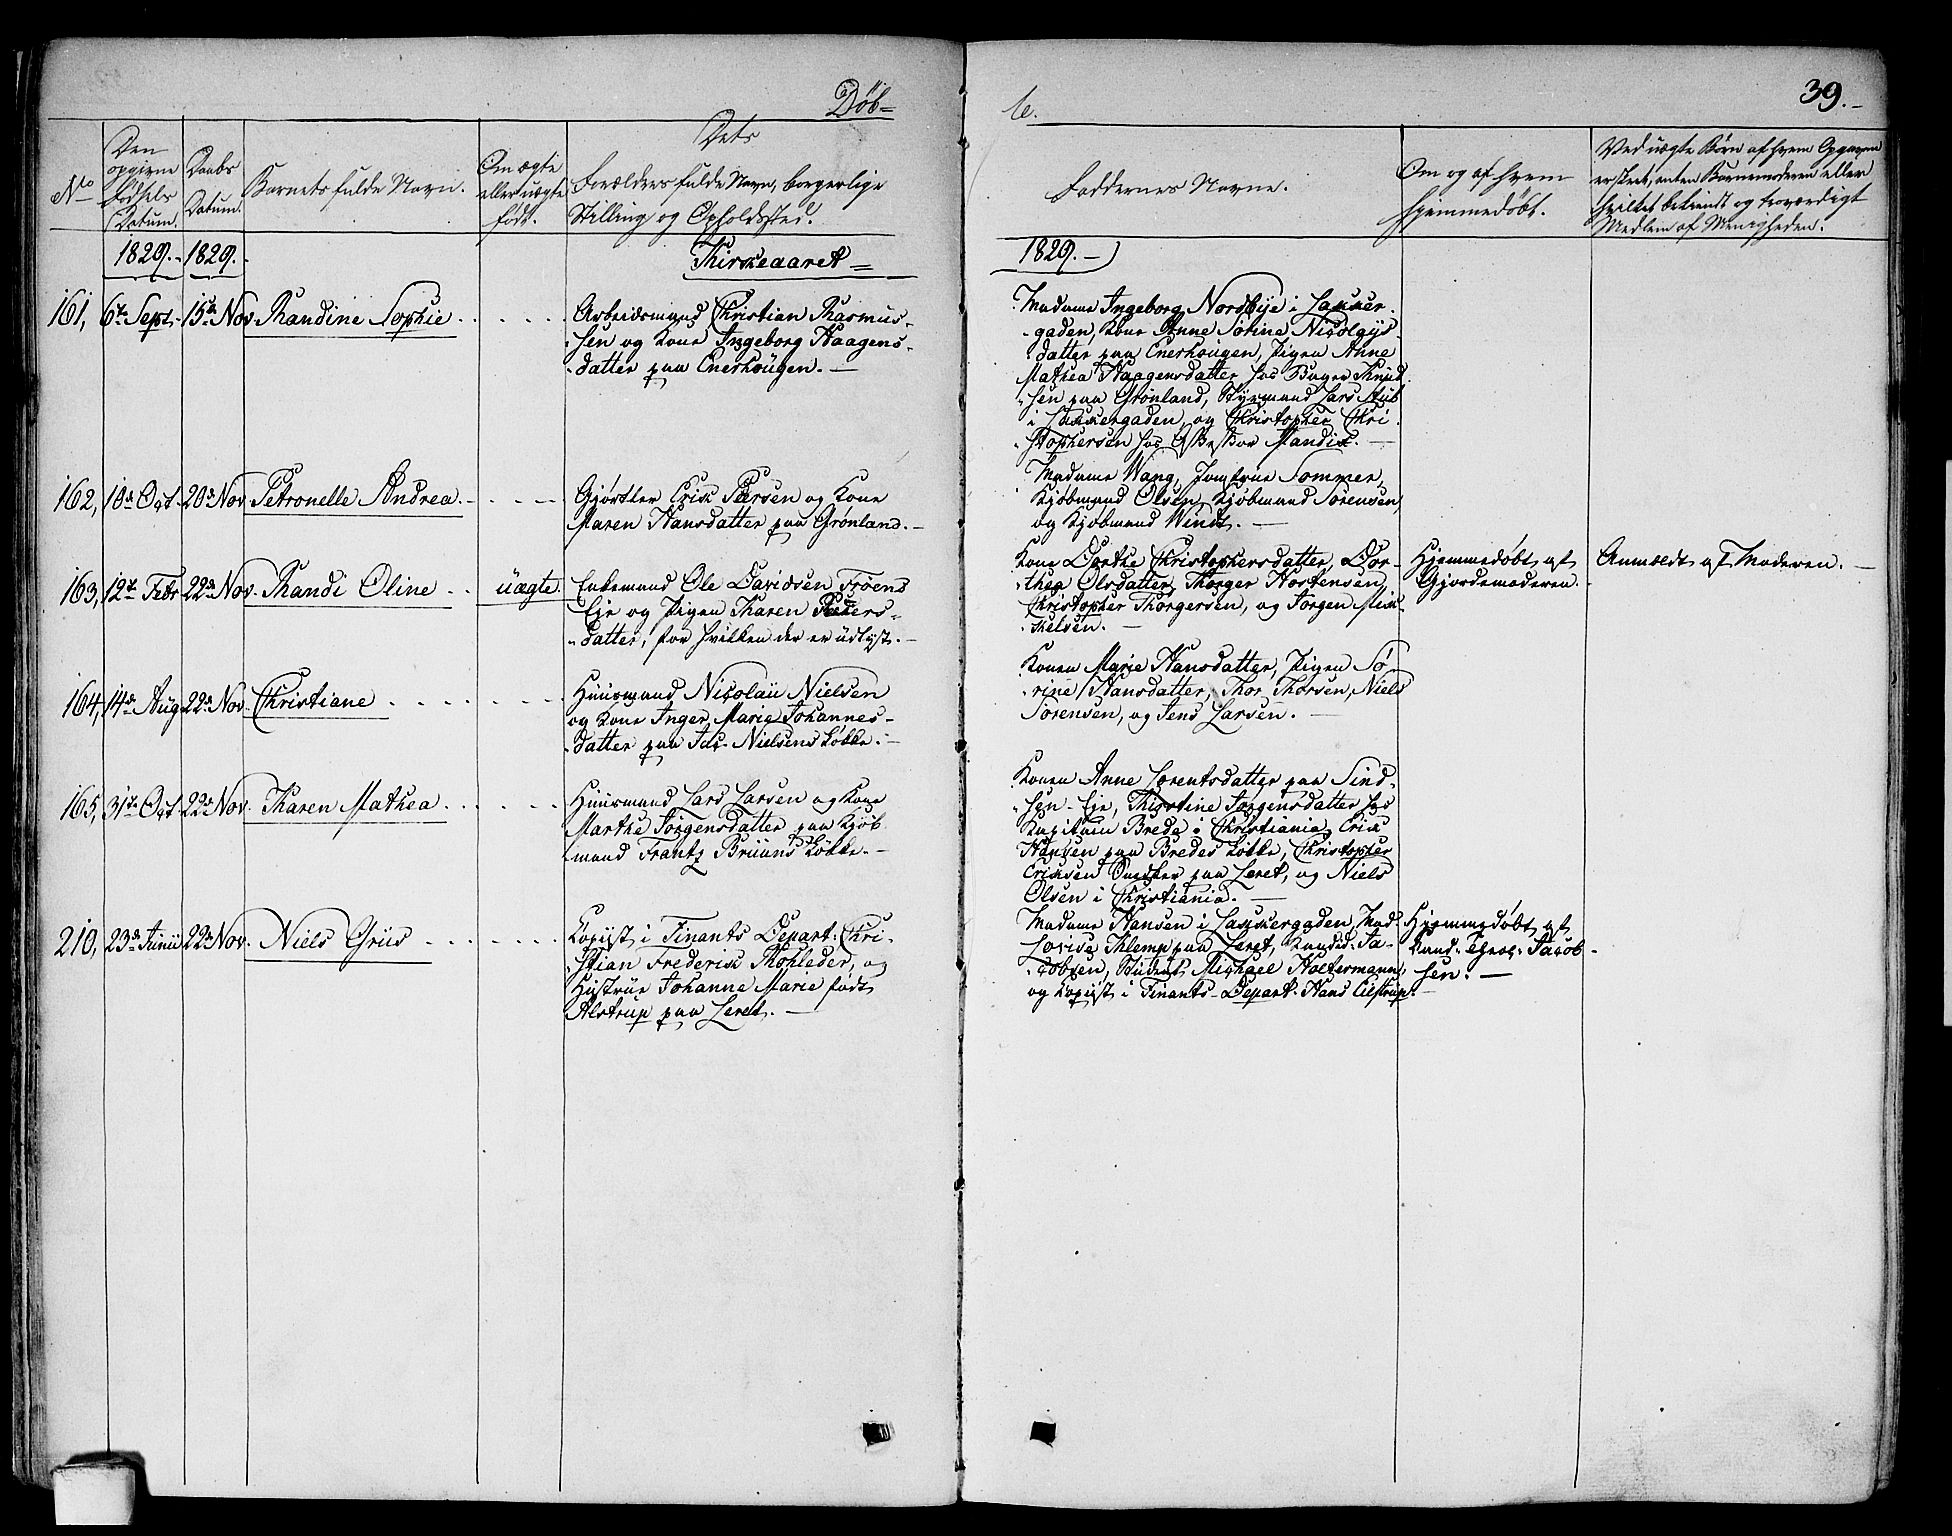 Døb=
te.
39.
No
Den
opgivne
Fødsels
Datum.
Daabs
Datum.
Barnets fulde Navn.
Om ægte
eller uægte
født.
Dets
Forældres fulde Navn, borgerlige
Stilling og Opholdssted.
Faddernes Navne.
Om og af hvem
hjemmedøbt.
Ved uægte Børn af hvem Opgaven
er skeet, enten Barnemoderen eller
hvilket bekiendt og troværdigt
Medlem af Menigheden.
1829. 1829.
Kirkeaaret
1829.
161, 6te Sept. 15de Nov. Randine Sophie
Arbeidsmand Christian Rasmus-
sen og Kone Ingeborg Haagens-
datter paa Enerhougen.
Madame Ingeborg Nordbye i Lakker-
gaden, Kone Anne Sørine Nicolays
datter paa Enerhougen, Pigen Anne
Mathea Haagensdatter hos Bager Knud
sen paa Grønland, Styrmand Lars Stub
i Lakkergaden, og Christopher Chri-
stophersen hos Mandix.
162, 10de Oct. 20de Nov. Petronelle Andrea.
Gjørtler Erik Peersen og Kone
Maren Hansdatter paa Grønland.
Madame Wang, Jomfrue Sommer,
Kjøbmand Olsen, Kjøbmand Sørensen
og Kjøbmand Windt.
163, 12te Febr 22de Nov. Randi Oline
uægte.
Enkemand Ole Davidsen Frøens
Eje og Pigen Karen Peters-
datter, for hvilken der er udlyst.
Kone Dorthe Christophersdatter, Dor-
thea Olsdatter, Thorger Hortensen,
Christopher Thorgersen, og Jørgen Mik-
kelsen.
Hjemmedøbt af
Gjordemoderen.
Anmeldt af Moderen.
164, 14de Aug 22de Nov. Christiane
Huusmand Nicolau Nielsen
og Kone Inger Marie Johannes-
datter paa Jac. Nielsens Løkke.
Konen Marie Hansdatter, Pigen Sø-
rine Hansdatter, Thor Thorsen, Niels
Sørensen, og Jens Larsen.
165, 31te Oct. 22de Nov. Karen Mathea
Huusmand Lars Larsen og Kone
Marthe Jørgensdatter paa Kjøb
mand Frantz Bruuns Løkke.
Konen Anne Lorentsdatter paa Sind-
sen-Eje, Kirstine Jørgensdatter hos
Kapitain Breda i Christiania, Erik
Hansen paa Bredes Løkke, Christopher
Eriksen Snedker paa Leret, og Niels
Olsen i Christiania.
210, 23de Junii 22de Nov. Niels Gruis
Kopist i Finants Depart. Chri-
stian Frederik Rohleder, og
Hustrue Johanne Marie født
Alstrup paa Leret.
Madame Hansen i Lakkergaden, Mad.
Lovise Klemp paa Leret, Kandid. Ja-
cobsen, Student Michael Holtermann,
og Kopist i Finants-Depart. Hans Elstrup.
Hjemmedøbt af
Kand. Theol. Jacob-
sen.